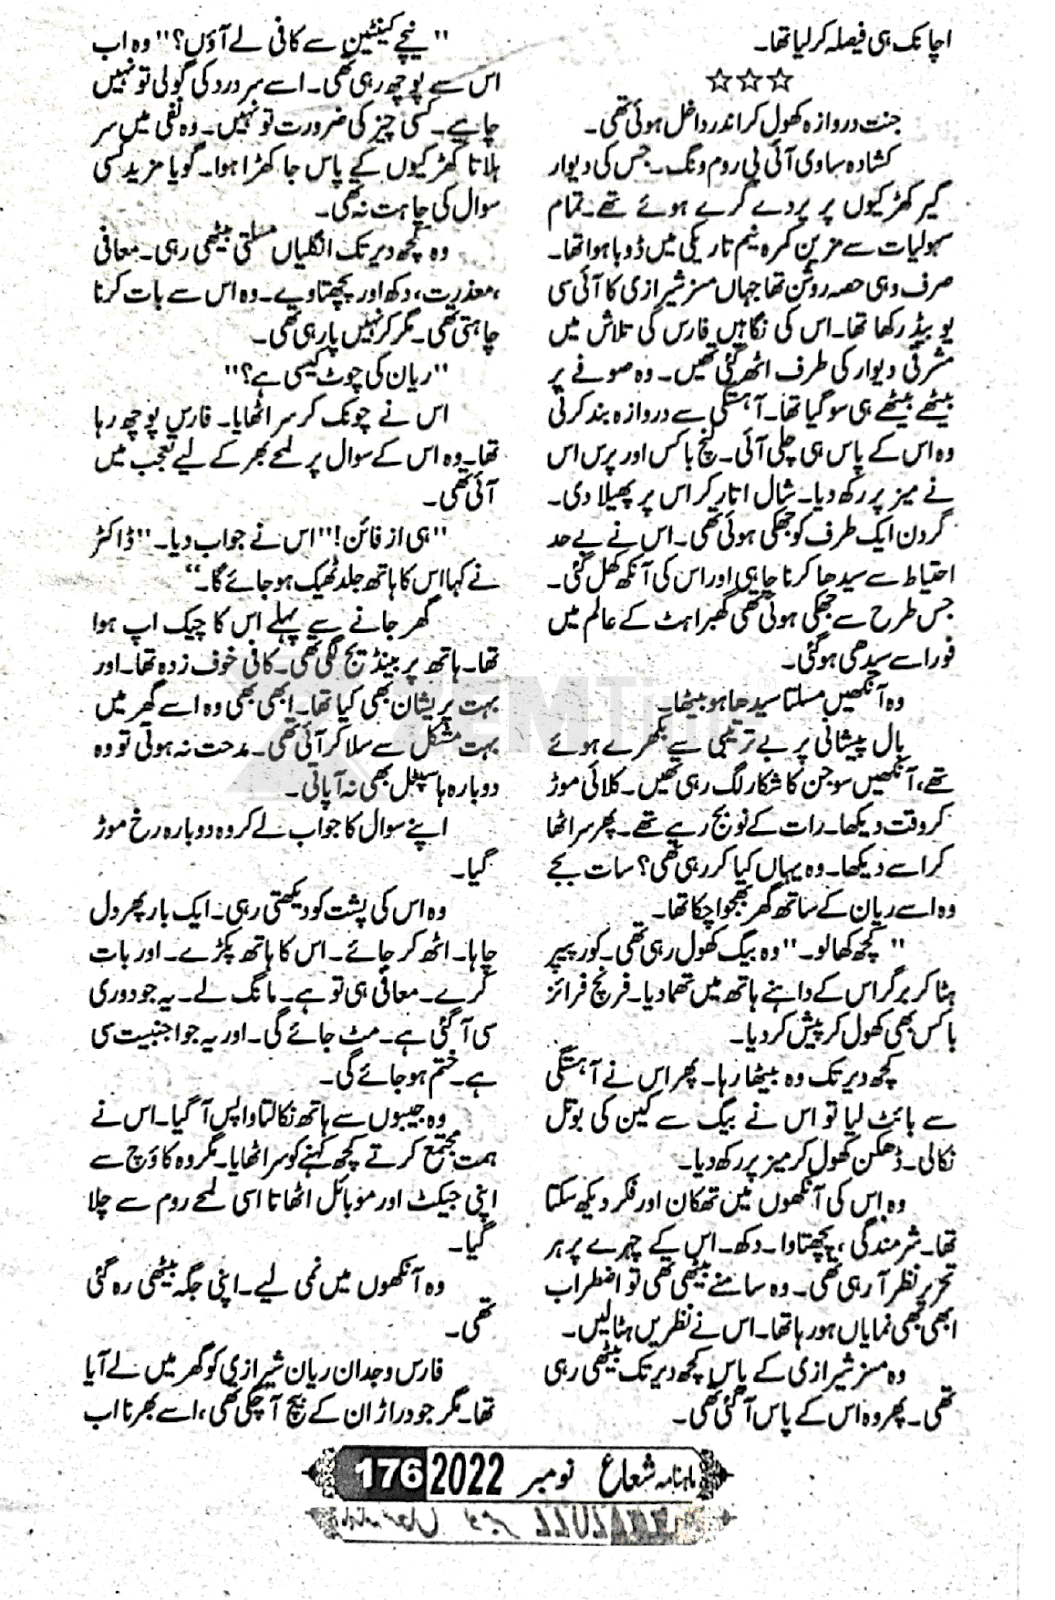 اچانک ہی فیصلہ کر لیا تھا۔
☆☆☆
جنت دروازہ کھول کر اندر داخل ہوئی تھی۔
کشادہ سا وی آئی پی روم ونگ۔ جس کی دیوار
گیر کھڑکیوں پر پردے گرے ہوئے تھے۔ تمام
سہولیات سے مزین کمرہ نیم تاریکی میں ڈوبا ہوا تھا۔
صرف وہی حصہ روشن تھا جہاں مسز شیرازی کا آئی سی
یو بیڈ رکھا تھا۔ اس کی نگاہیں فارس کی تلاش میں
مشرقی دیوار کی طرف اٹھ گئی تھیں۔ وہ صوفے پر
بیٹھے بیٹھے ہی سو گیا تھا۔ آہستگی سے دروازہ بند کرتی
وہ اس کے پاس ہی چلی آئی۔ لنچ باکس اور پرس اس
نے میز پر رکھ دیا۔ شال اتار کر اس پر پھیلا دی۔
گردن ایک طرف کو جھکی ہوئی تھی۔ اس نے بے حد
احتیاط سے سیدھا کرنا چاہی اور اس کی آنکھ کھل گئی۔
جس طرح سے جھکی ہوئی تھی گھبراہٹ کے عالم میں
فورا سے سیدھی ہو گئی۔
وہ آنکھیں مسلتا سیدھا ہو بیٹھا۔
بال پیشانی پر بے ترتیبی سے بکھرے ہوئے
تھے، آنکھیں سوجن کا شکار لگ رہی تھیں۔ کلائی موڑ
کر وقت دیکھا۔ رات کے نو بج رہے تھے۔ پھر سر اٹھا
کر اسے دیکھا۔ وہ یہاں کیا کر رہی تھی؟ سات بجے
وہ اسے ریان کے ساتھ گھر بھجوا چکا تھا۔
"کچھ کھا لو۔" وہ بیگ کھول رہی تھی۔ کور پیپر
ہٹا کر برگر اس کے داہنے ہاتھ میں تھما دیا۔ فرنچ فرائز
باکس بھی کھول کر پیش کر دیا۔
کچھ دیر تک وہ بیٹھا رہا۔ پھر اس نے آہستگی
سے بائٹ لیا تو اس نے بیگ سے کین کی بوتل
نکالی۔ ڈھکن کھول کر میز پر رکھ دیا۔
وہ اس کی آنکھوں میں تھکان اور فکر دیکھ سکتا
تھا۔ شرمندگی، پچھتاوا۔ دکھ۔ اس کے چہرے پر ہر
تحریر نظر آ رہی تھی۔ وہ سامنے بیٹھی تھی تو اضطراب
ابھی بھی نمایاں ہو رہا تھا۔ اس نے نظریں ہٹا لیں۔
وہ مسز شیرازی کے پاس کچھ دیر تک بیٹھی رہی
تھی۔ پھر وہ اس کے پاس آ گئی تھی۔
"نیچے کینٹین سے کافی لے آؤں؟" وہ اب
اس سے پوچھ رہی تھی۔ اسے سر درد کی گولی تو نہیں
چاہیے۔ کسی چیز کی ضرورت تو نہیں۔ وہ نفی میں سر
ہلاتا کھڑکیوں کے پاس جا کھڑا ہوا۔ گویا مزید کسی
سوال کی چاہت نہ تھی۔
وہ کچھ دیر تک انگلیاں مسلتی بیٹھی رہی۔ معافی
،معذرت، دکھ اور پچھتاوے۔ وہ اس سے بات کرنا
چاہتی تھی۔ مگر کر نہیں پا رہی تھی۔
"ریان کی چوٹ کیسی ہے؟"
اس نے چونک کر سر اٹھایا۔ فارس پوچھ رہا
تھا۔ وہ اس کے سوال پر لمحے بھر کے لیے تعجب میں
آئی تھی۔
"ہی از فائن!" اس نے جواب دیا۔ "ڈاکٹر
نے کہا اس کا ہاتھ جلد ٹھیک ہو جائے گا۔"
گھر جانے سے پہلے اس کا چیک اپ ہوا
تھا۔ ہاتھ پر بینڈیج لگی تھی۔ کافی خوف زدہ تھا۔ اور
بہت پریشان بھی کیا تھا۔ ابھی بھی وہ اسے گھر میں
بہت مشکل سے سلا کر آئی تھی۔ مدحت نہ ہوتی تو وہ
دوبارہ ہاسپٹل بھی نہ آ پاتی۔
اپنے سوال کا جواب لے کر وہ دوبارہ رخ موڑ
گیا۔
وہ اس کی پشت کو دیکھتی رہی۔ ایک بار پھر دل
چاہا۔ اٹھ کر جائے۔ اس کا ہاتھ پکڑے۔ اور بات
کرے۔ معافی ہی تو ہے۔ مانگ لے۔ یہ جو دوری
سی آ گئی ہے۔ مٹ جائے گی۔ اور یہ جو اجنبیت سی
ہے۔ ختم ہو جائے گی۔
وہ جیبوں سے ہاتھ نکالتا واپس آ گیا۔ اس نے
ہمت مجتمع کرتے کچھ کہنے کو سر اٹھایا۔ مگر وہ کاؤچ سے
اپنی جیکٹ اور موبائل اٹھاتا اسی لمحے روم سے چلا
گیا۔
وہ آنکھوں میں نمی لیے۔ اپنی جگہ بیٹھی رہ گئی
تھی۔
فارس وجدان ریان شیرازی کو گھر میں لے آیا
تھا۔ مگر جو دراڑ ان کے بیچ آ چکی تھی، اسے بھرنا اب
ماہنامہ شعاع نومبر 2022 176